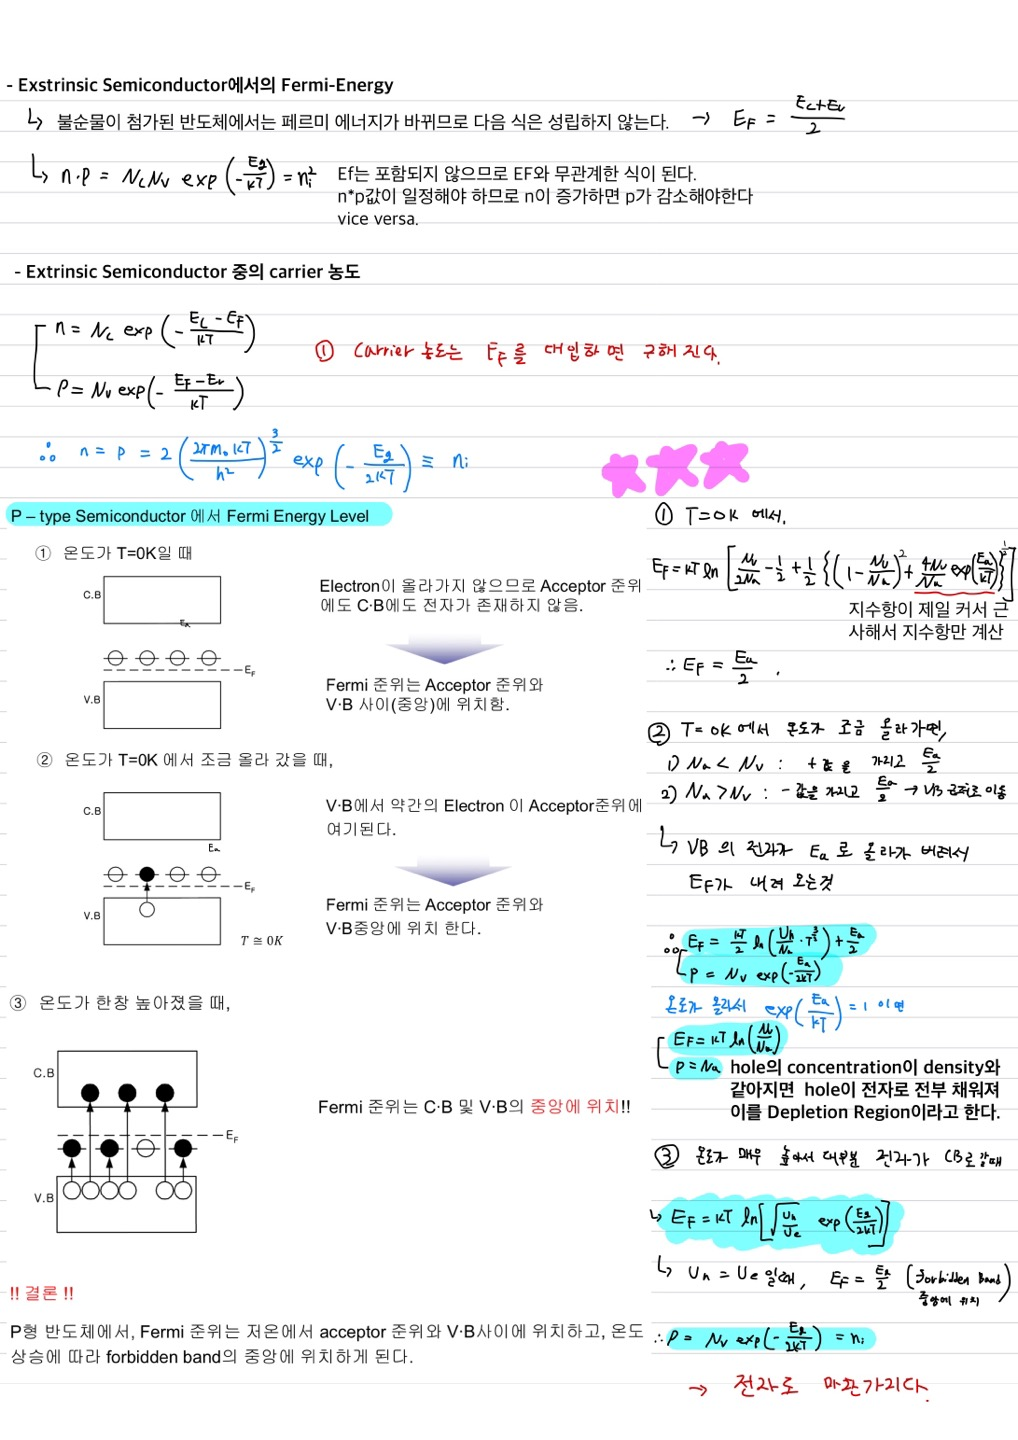 - Exstrinsic Semiconductor에서의 Fermi-Energy
↳ 불순물이 첨가된 반도체에서는 페르미 에너지가 바뀌므로 다음 식은 성립하지 않는다. → E_F = (E_c+E_v)/2
↳ n·p = N_c N_v exp(-E_g/kT) = n_i²
Ef는 포함되지 않으므로 EF와 무관계한 식이 된다.
n*p값이 일정해야 하므로 n이 증가하면 p가 감소해야한다
vice versa.
- Extrinsic Semiconductor 중의 carrier 농도
n = N_c exp(-(E_c - E_F)/kT)
P = N_v exp(-(E_F - E_v)/kT)
① Carrier 농도는 E_F를 대입하면 구해진다.
∴ n = P = 2(2πm₀kT/h²)^(3/2) exp(-E_g/2kT) ≡ n_i
P – type Semiconductor 에서 Fermi Energy Level
① 온도가 T=0K일 때
C.B
E_a
E_F
V.B
Electron이 올라가지 않으므로 Acceptor 준위
에도 C·B에도 전자가 존재하지 않음.
Fermi 준위는 Acceptor 준위와
V·B 사이(중앙)에 위치함.
② 온도가 T=0K 에서 조금 올라 갔을 때,
C.B
E_a
E_F
V.B
T ≅ 0K
V·B에서 약간의 Electron 이 Acceptor준위에
여기된다.
Fermi 준위는 Acceptor 준위와
V·B중앙에 위치 한다.
③ 온도가 한창 높아졌을 때,
C.B
E_F
V.B
Fermi 준위는 C·B 및 V·B의 중앙에 위치!!
!! 결론 !!
P형 반도체에서, Fermi 준위는 저온에서 acceptor 준위와 V·B사이에 위치하고, 온도
상승에 따라 forbidden band의 중앙에 위치하게 된다.
① T=0K 에서,
E_F = kT ln[N_v/2N_a - 1/2 + 1/2{(1 - N_v/N_a)² + 4N_v/N_a exp(E_a/kT)}^(1/2)]
지수항이 제일 커서 근
사해서 지수항만 계산
∴ E_F = E_a/2 .
② T=0K 에서 온도가 조금 올라가면,
1) N_a < N_v : +값을 가지고 E_a/2
2) N_a > N_v : -값을 가지고 E_a/2 → VB 근처로 이동
↳ VB 의 전자가 E_a 로 올라가 버려서
E_F가 내려 오는것
∴ E_F = kT/2 ln(U_h/N_a · T^(3/2)) + E_a/2
P = N_v exp(-E_a/2kT)
온도가 올라서 exp(E_a/kT) = 1 이면
E_F = kT ln(N_v/N_a)
P = N_a hole의 concentration이 density와
같아지면 hole이 전자로 전부 채워져
이를 Depletion Region이라고 한다.
③ 온도가 매우 높아서 대부분 전자가 CB로 갈때
↳ E_F = kT ln[√(U_h/U_e) exp(E_g/2kT)]
↳ U_h = U_e 일때, E_F = E_g/2 (Forbidden Band
중앙에 위치)
∴ P = N_v exp(-E_g/2kT) = n_i
→ 전자도 마찬가지다.